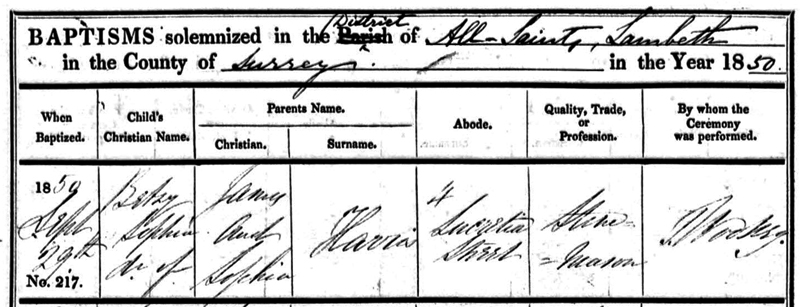 BAPTISMS solemnized in the District of All-Saints, Lambeth
in the County of Surrey. in the Year 1850.
When Baptized. Child's Christian Name. Parents Name. Abode. Quality, Trade, or Profession. By whom the Ceremony was performed.
Christian. Surname.
1850 Betsy James 4
Sept Sophia and Harris Lucretia Stone-
29th dr. of Sophia Street =mason
No. 217.